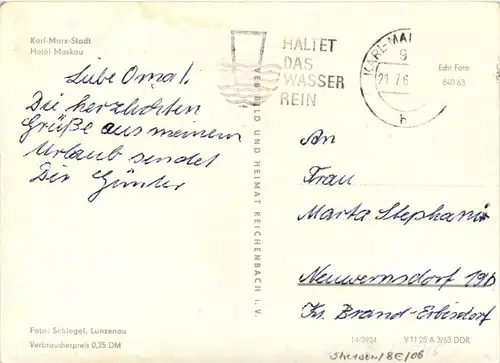 Karl-Marx-Stadt
Hotel Moskau
Liebe Oma!
Die herzlichsten
Grüße aus meinem
Urlaub sendet
Dir Günter
Foto: Schlegel, Lunzenau
Verbraucherpreis 0,25 DM
VEB BILD UND HEIMAT REICHENBACH i. V.
HALTET
DAS
WASSER
REIN
KARL-MA
9
21.7.6
h
Echt Foto
640/63
An
Frau
Marta
Neuwernsdorf 19b
Krs. Brand-Erbisdorf
14/5904 V 11 28 A 3/63 DDR